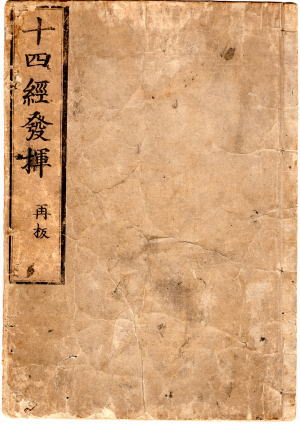 十四經發揮
再板